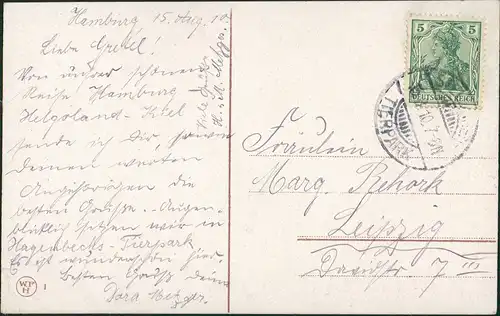 Hamburg 15. Aug. 10.
Liebe Gretel!
Von unsrer schönen
Reise Hamburg
Helgoland-Kiel
sende ich Dir, sowie
deinen werten
Angehörigen die
besten Grüsse. Augen-
blicklich sitzen wir in
Hagenbecks-Tierpark
Es ist wunderschön hier
Besten Gruss deine
Dora
Viele Grüsse
5 5
DEUTSCHES REICH
TIERPARK
Fräulein
Marg. Rehork
Leipzig
Davidstr. 7 III
WPH
1